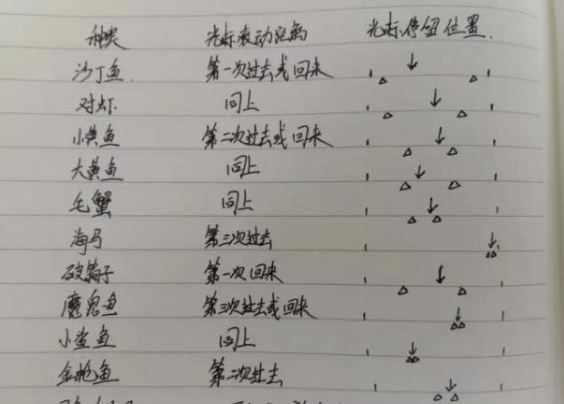 种类 光标表动距离 光标停留位置
沙丁鱼 第一次过去或回来
对虾 同上
小黄鱼 第二次过去或回来
大黄鱼 同上
毛蟹 同上
海马 第三次过去
破鞋子 第一次回来
魔鬼鱼 第三次过去或回来
小鲨鱼 同上
金枪鱼 第二次过去